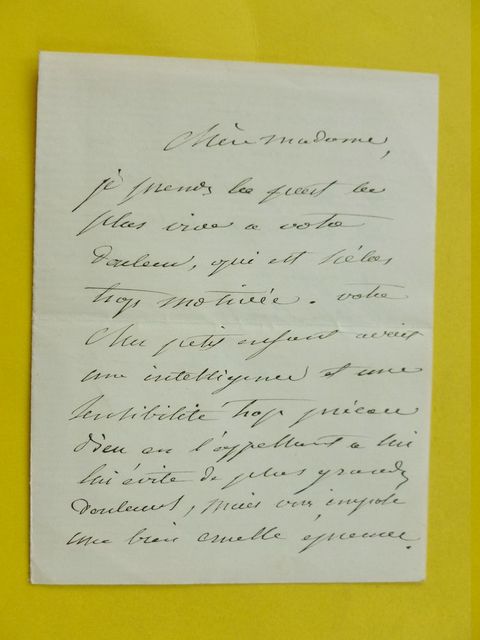 Chère madame,
je prends la part la
plus vive a votre
douleur, qui est hélas,
trop motivée. votre
cher petit enfant avait
une intelligence et une
sensibilité trop précoce
Dieu en l'appellant a lui
lui évite de plus grandes
douleurs, mais vous impose
une bien cruelle épreuve.